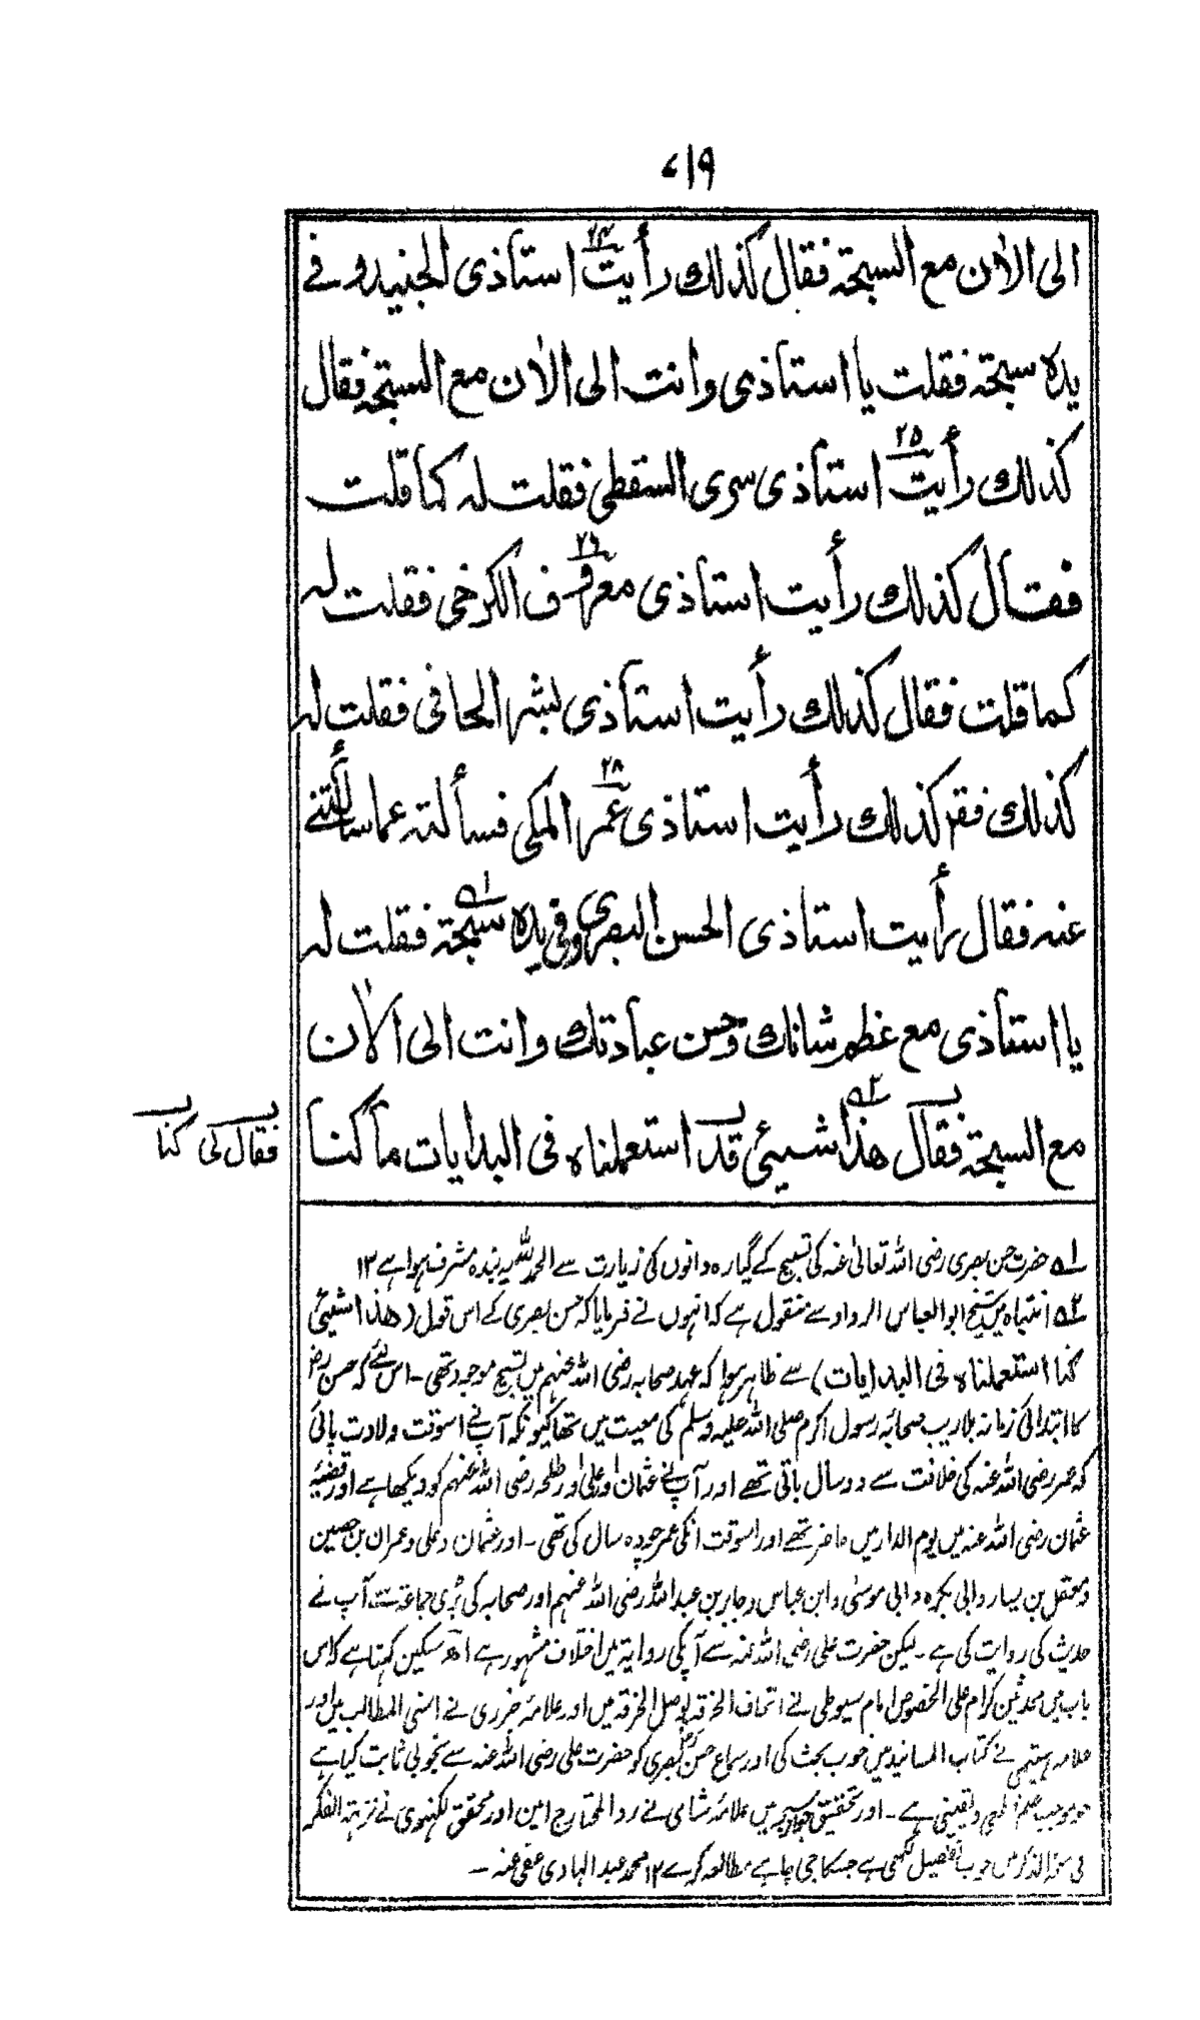 ؍۱۹
الی الاٰن مع السبحة فقال کذلك رأیت۲۴ استاذی الجنید وفے
یده سبحة فقلت یا استاذی وانت الی الاٰن مع السبحة فقال
کذلك رأیت۲۵ استاذی سری السقطی فقلت له کما قلت
فقال کذلك رأیت استاذی معروف۲۶ الکرخی فقلت له
کما قلت فقال کذلك رأیت استاذی بشر الحافی فقلت له
کذلك فقر کذلك رأیت استاذی عمر۲۸ المکی فسألته عما سألتنے
عنه فقال رأیت استاذی الحسن البصری وفی یده سبحة۱ فقلت له
یا استاذی مع عظم شانك وحسن عبادتك وانت الی الاٰن
مع السبحة فقال هذا۲ شیئی قد استعملناه فی البدایات ماکنا
فقال لی کنا
۱ حضرت حسن بصری رضی اللہ تعالیٰ عنہ کی تسبیح کے گیارہ دانوں کی زیارت سے الحمد للہ یہ بندہ مشرف ہوا ہے ۱۲
۲ انتباہ میں شیخ ابو العباس الرواد سے منقول ہے کہ انہوں نے فرمایا کہ حسن بصری کے اس قول (هذا شیئی
کنا استعملناه فی البدایات) سے ظاہر ہوا کہ عہد صحابہ رضی اللہ عنہم میں تسبیح موجود تھی ۔ اس لئے کہ حسن بصری رض
کا ابتدائی زمانہ بلاریب صحابۂ رسول اکرم صلی اللہ علیہ وسلم کی معیت میں تھا کیونکہ آپ نے اسوقت ولادت پائی
کہ عمر رضی اللہ عنہ کی خلافت سے دو سال باقی تھے اور آپ نے عثمان اور علی اور طلحہ رضی اللہ عنہم کو دیکھا ہے اور قضیۂ
عثمان رضی اللہ عنہ میں یوم الدار میں حاضر تھے اور اسوقت انکی عمر چودہ سال کی تھی ۔ اور عثمان وعلی وعمران بن حصین
ومعقل بن یسار وابی بکرہ وابی موسیٰ وابن عباس وجابر بن عبداللہ رضی اللہ عنہم اور صحابہ کی بڑی جماعت سے آپ نے
حدیث کی روایت کی ہے ۔ لیکن حضرت علی رضی اللہ عنہ سے آپکی روایۃ میں اختلاف مشہور ہے اھ مسکین کہتا ہے کہ اس
باب میں محدثین کرام علی الخصوص امام سیوطی نے اتحاف الخرقہ بوصل الخرقہ میں اور علامہ جزری نے اسنی المطالب میں اور
علامہ ہیتمی نے کتاب المسانید میں خوب بحث کی اور سماع حسن بصری کو حضرت علی رضی اللہ عنہ سے بخوبی ثابت کیا ہے
جو موجب علم ویقینی ہے ۔ اور تحقیق جواز سبحہ میں علامہ شامی نے رد المحتار ج امین اور محقق لکہنوی نے نزہۃ الفکر
فی سبحۃ الذکر میں خوب تفصیل لکھی ہے جسکا جی چاہے مطالعہ کرے ۱۲ محمد عبد الہادی عفی عنہ ۔